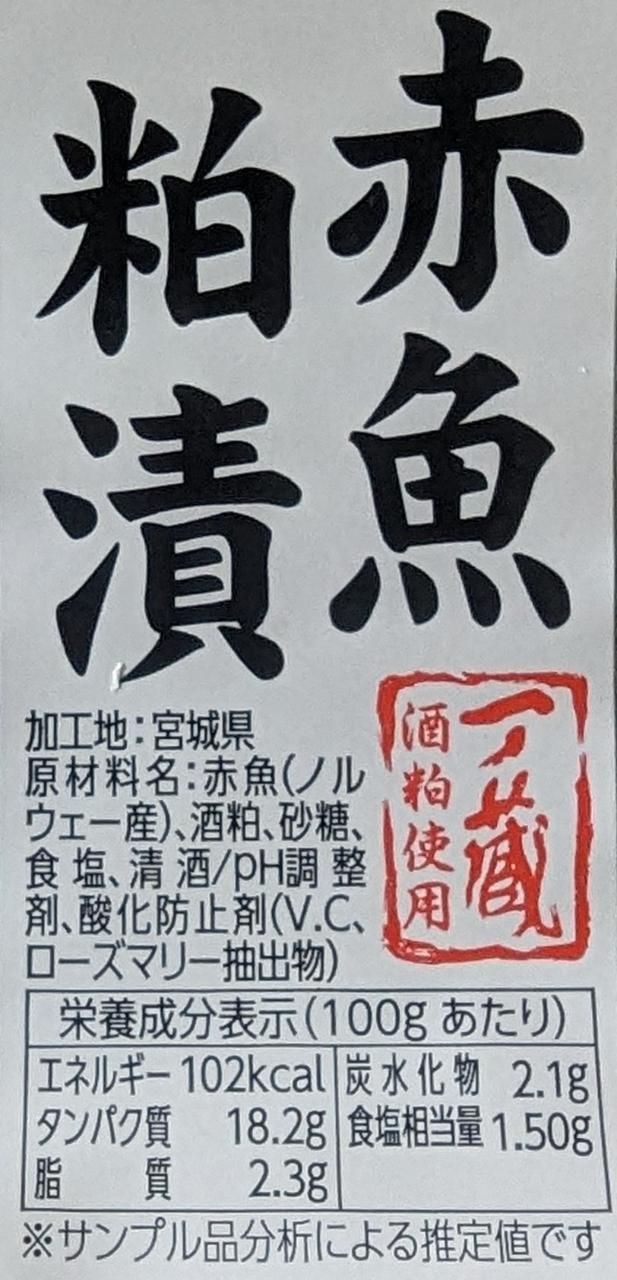 赤魚
粕漬
一ノ蔵
酒粕使用
加工地：宮城県
原材料名：赤魚(ノル
ウェー産)、酒粕、砂糖、
食塩、清酒/pH調整
剤、酸化防止剤(V.C、
ローズマリー抽出物)
栄養成分表示(100gあたり)
エネルギー 102kcal
タンパク質 18.2g
脂質 2.3g
炭水化物 2.1g
食塩相当量 1.50g
※サンプル品分析による推定値です